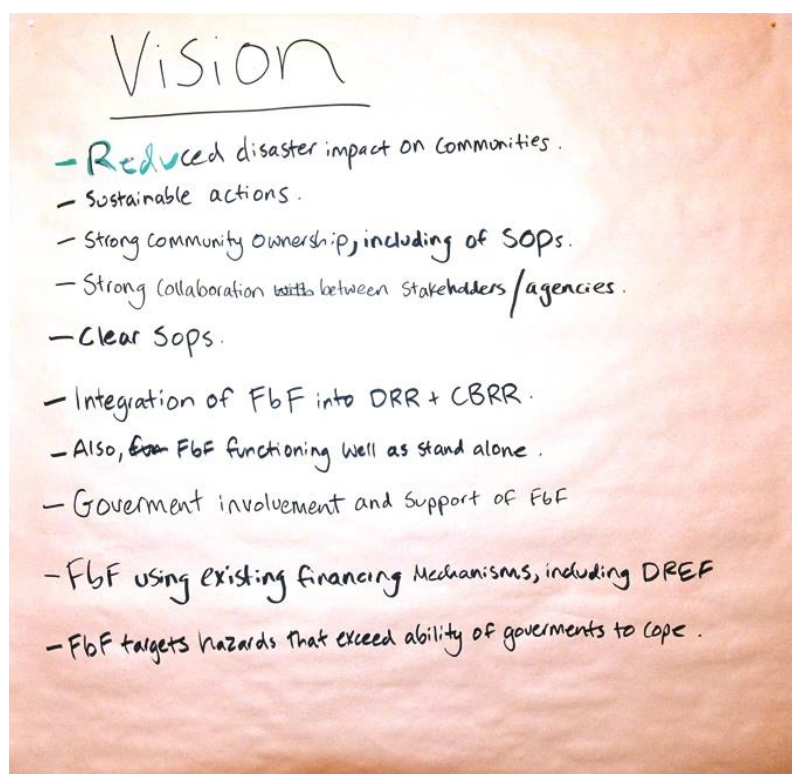 Vision
- Reduced disaster impact on communities.
- Sustainable actions.
- Strong community ownership, including of SOPs.
- Strong collaboration with between stakeholders/agencies.
- Clear SOPs.
- Integration of FbF into DRR + CBRR.
- Also, FbF functioning well as stand alone.
- Goverment involvement and support of FbF
- FbF using existing financing Mechanisms, including DREF
- FbF targets hazards that exceed ability of goverments to cope.